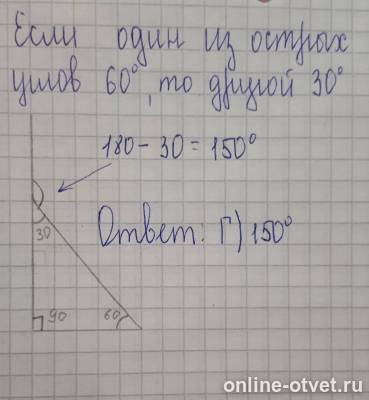 Если один из острых
углов 60°, то другой 30°
180 - 30 = 150°
30
Ответ: Г) 150°
90
60
online-otvet.ru